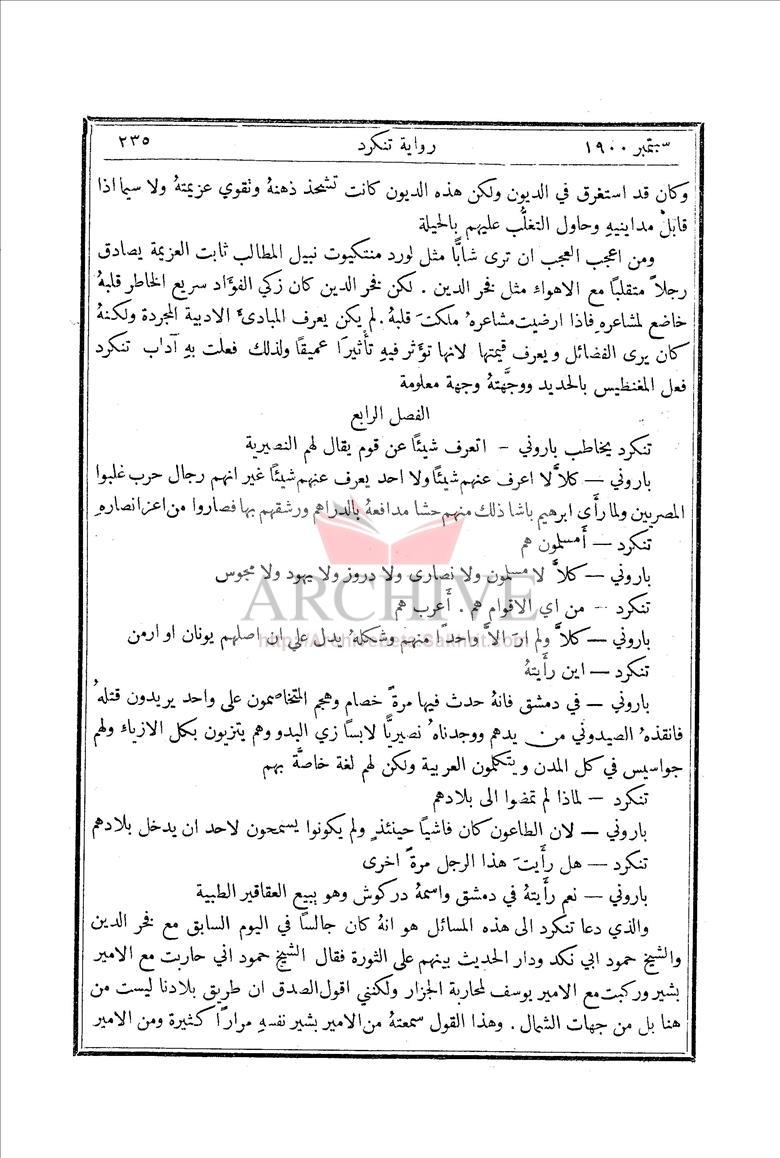 سبتمبر ١٩٠٠ رواية تنكرد ٢٣٥
وكان قد استغرق في الديون ولكن هذه الديون كانت تشحذ ذهنهُ وتقوي عزيمتهُ ولا سيما اذا
قابل مداينيهِ وحاول التغلُّب عليهم بالحيلة
ومن اعجب العجب ان ترى شابًّا مثل لورد منتكيوت نبيل المطالب ثابت العزيمة يصادق
رجلاً متقلباً مع الاهواء مثل فخر الدين . لكن فخر الدين كان زكي الفؤاد سريع الخاطر قلبهُ
خاضع لمشاعرهِ فاذا ارضيت مشاعرهُ ملكت قلبهُ . لم يكن يعرف المبادئ الادبية المجردة ولكنهُ
كان يرى الفضائل ويعرف قيمتها لانها تؤثر فيهِ تأثيرًا عميقًا ولذلك فعلت بهِ آداب تنكرد
فعل المغنطيس بالحديد ووجَّهتهُ وجهة معلومة
الفصل الرابع
تنكرد يخاطب باروني – اتعرف شيئًا عن قوم يقال لهم النصيرية
باروني — كلاَّ لا اعرف عنهم شيئًا ولا احد يعرف عنهم شيئًا غير انهم رجال حرب غلبوا
المصريين ولما رأَى ابرهيم باشا ذلك منهم حشا مدافعهُ بالدراهم ورشقهم بها فصاروا من اعز انصارهِ
تنكرد — أَمسلمون هم
باروني — كلاَّ لا مسلمون ولا نصارى ولا دروز ولا يهود ولا مجوس
تنكرد – من اي الاقوام هم . أَعرب هم
باروني — كلاَّ ولم ارَ الاَّ واحدًا منهم وشكلهُ يدل على ان اصلهم يونان او ارمن
تنكرد — اين رأَيتهُ
باروني — في دمشق فانهُ حدث فيها مرةً خصام وهجم المتخاصمون على واحد يريدون قتلهُ
فانقذهُ الصيدوني من يدهم ووجدناهُ نصيريًّا لابسًا زي البدو وهم يتزيون بكل الازياء ولهم
جواسيس في كل المدن ويتكلمون العربية ولكن لهم لغة خاصَّة بهم
تنكرد — لماذا لم تمضوا الى بلادهم
باروني — لان الطاعون كان فاشيًا حينئذٍ ولم يكونوا يسمحون لاحد ان يدخل بلادهم
تنكرد — هل رأَيتَ هذا الرجل مرةً اخرى
باروني — نعم رأَيتهُ في دمشق واسمهُ دركوش وهو يبيع العقاقير الطبية
والذي دعا تنكرد الى هذه المسائل هو انهُ كان جالسًا في اليوم السابق مع فخر الدين
والشيخ حمود ابي نكد ودار الحديث بينهم على الثورة فقال الشيخ حمود اني حاربت مع الامير
بشير وركبت مع الامير يوسف لمحاربة الجزار ولكنني اقول الصدق ان طريق بلادنا ليست من
هنا بل من جهات الشمال . وهذا القول سمعتهُ من الامير بشير نفسهِ مرارًا كثيرة ومن الامير
ARCHIVE